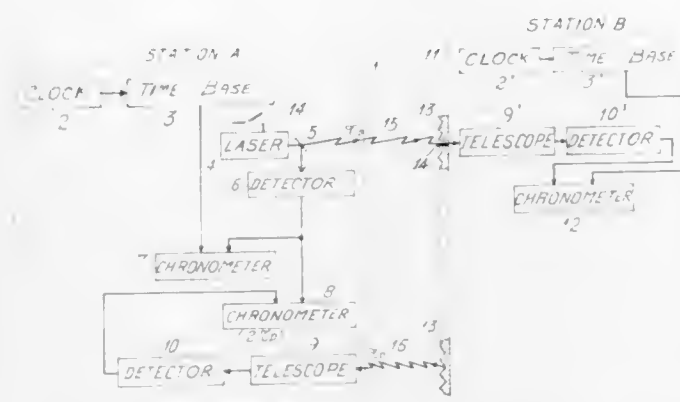 STATION B
STATION A
11 CLOCK TIME BASE
2' 3'
CLOCK TIME BASE
2 3
14 13 9' 10'
LASER 5 15 TELESCOPE DETECTOR
4 14
6 DETECTOR
CHRONOMETER
12
7 CHRONOMETER
8
CHRONOMETER
13
10 9 16
DETECTOR TELESCOPE